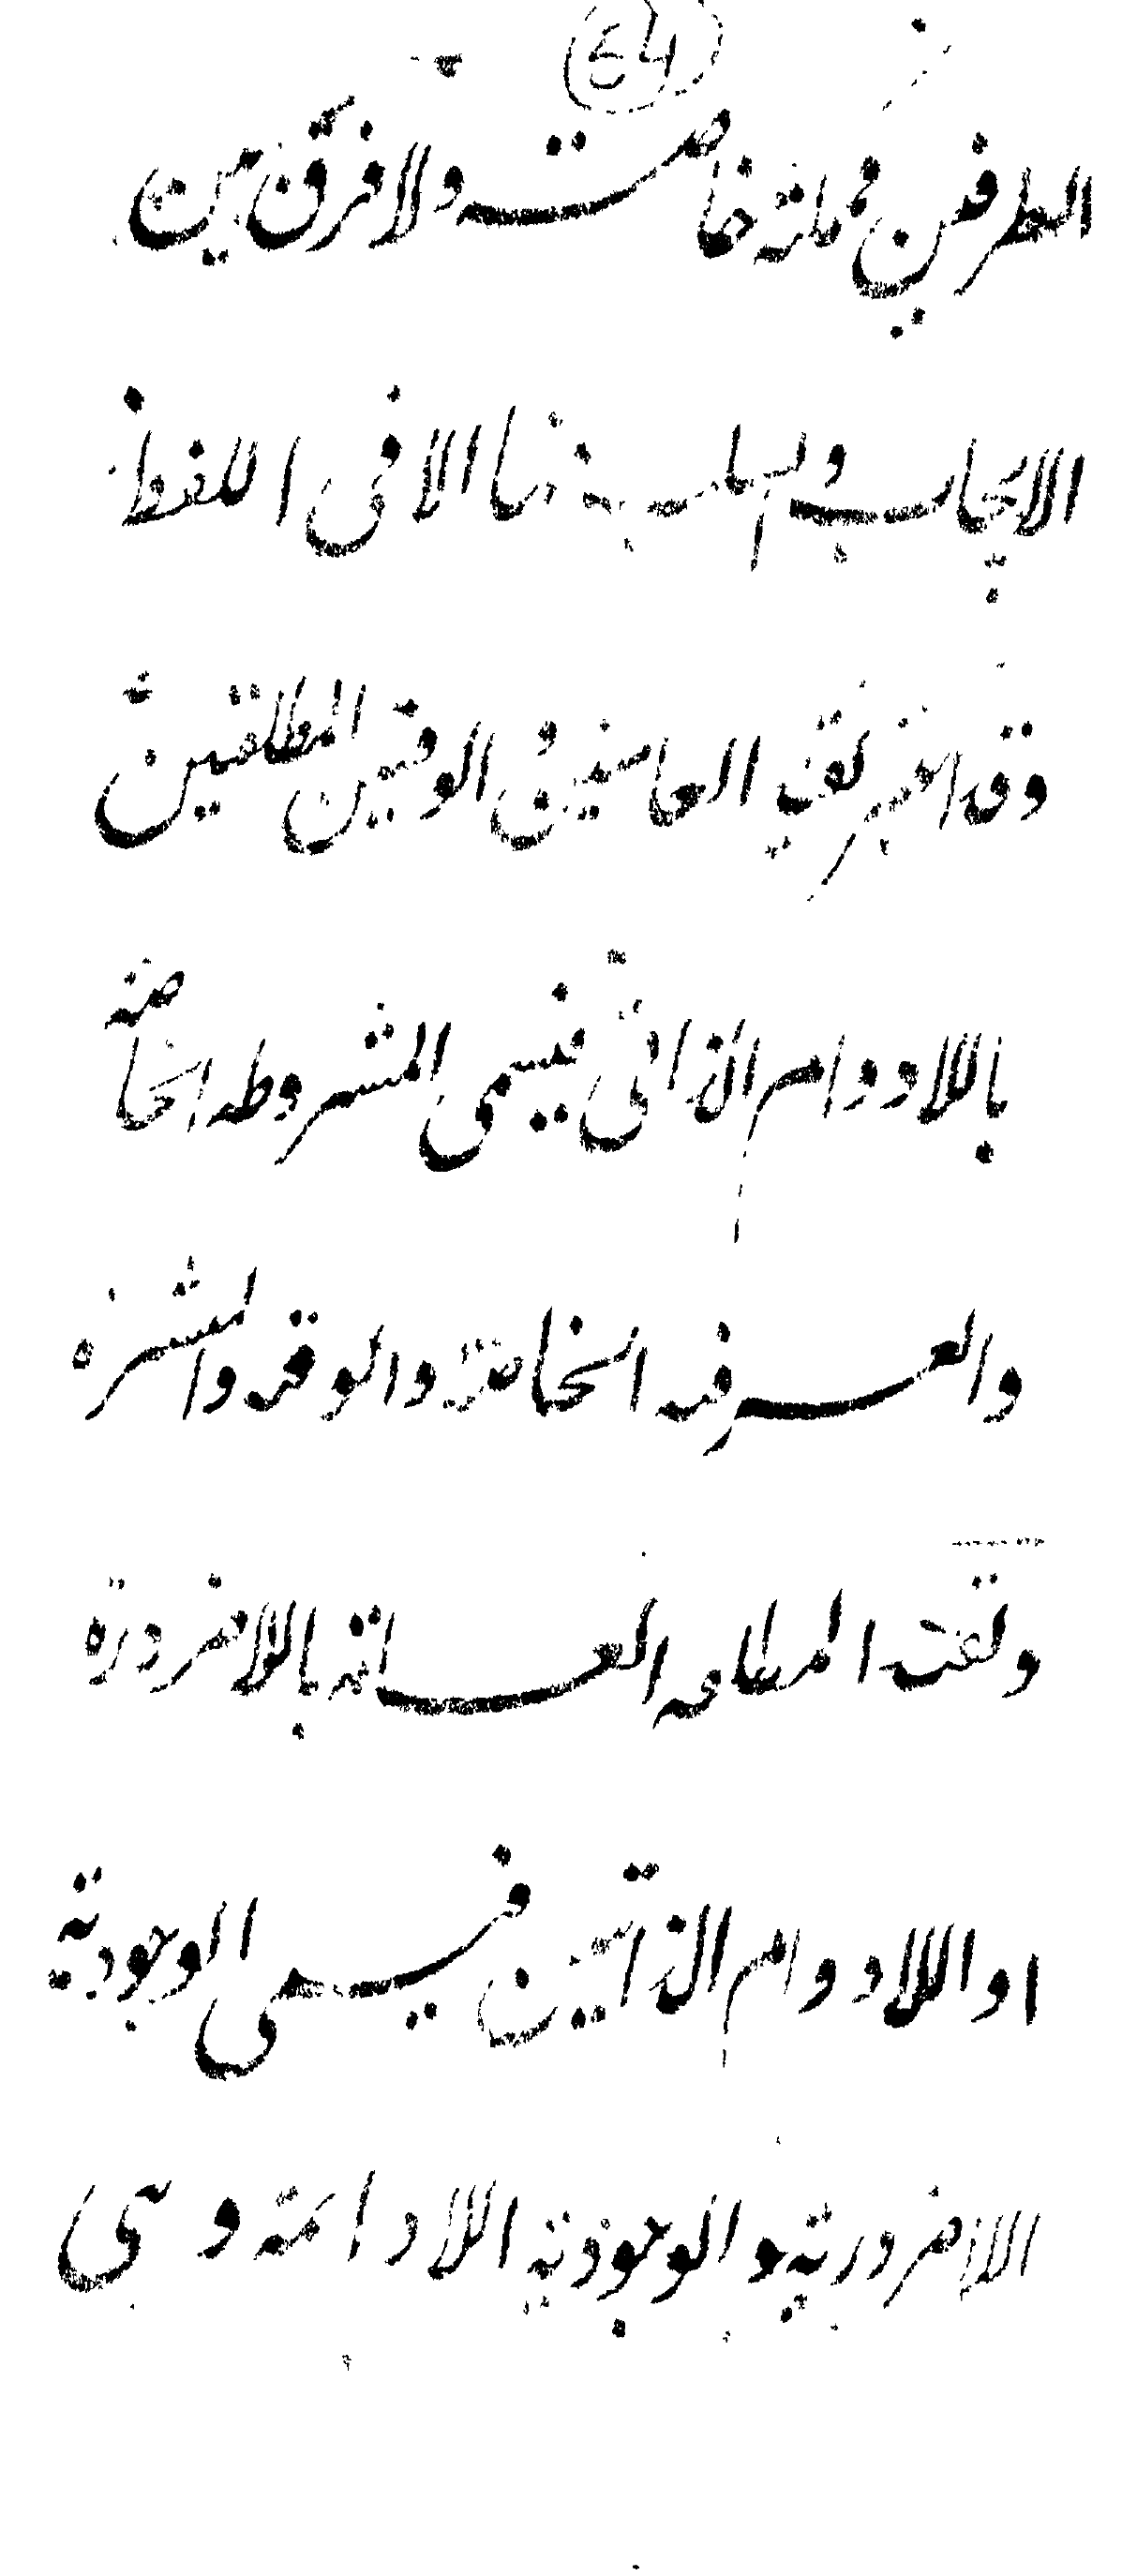 ٤٤
الطرفين فممكنة خاصة ولا فرق بين
الايجاب والسلب فيها الا في اللفظ
وقد تقيد العامتين الوقتيتين المطلقتين
باللادوام الذاتي فيسمى المشروطه الخاصه
والعرفيه الخاصة والوقتيه والمنتشره
وتقيد المطلقه العامه باللاضرورة
او اللادوام الذاتيين فيسمى الوجوديه
اللاضرورية والوجودية اللادائمة و